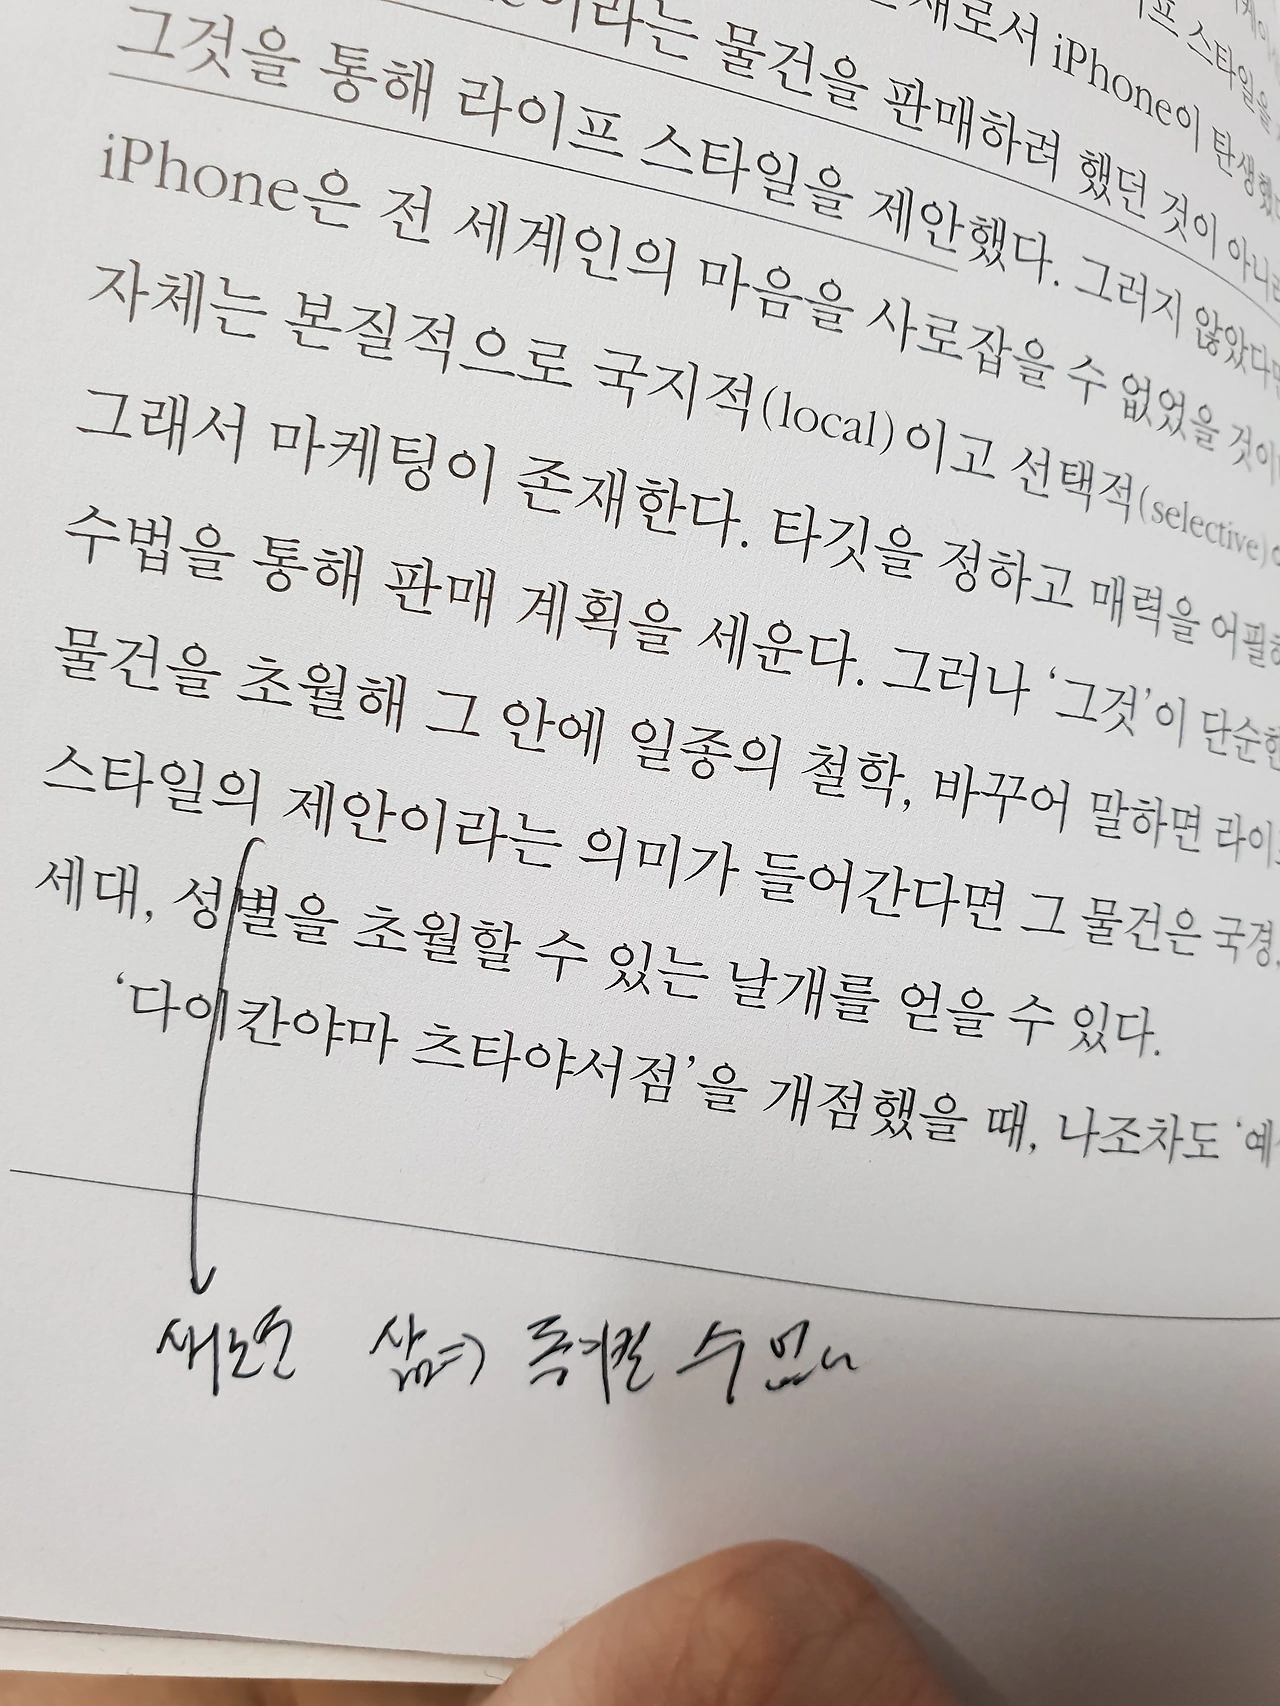 스타일을
재로서 iPhone이 탄생했
이라는 물건을 판매하려 했던 것이 아니라
그것을 통해 라이프 스타일을 제안했다. 그러지 않았다면
iPhone은 전 세계인의 마음을 사로잡을 수 없었을 것이
자체는 본질적으로 국지적(local)이고 선택적(selective)이
그래서 마케팅이 존재한다. 타깃을 정하고 매력을 어필하
수법을 통해 판매 계획을 세운다. 그러나 ‘그것’이 단순한
물건을 초월해 그 안에 일종의 철학, 바꾸어 말하면 라이
스타일의 제안이라는 의미가 들어간다면 그 물건은 국경,
세대, 성별을 초월할 수 있는 날개를 얻을 수 있다.
‘다이칸야마 츠타야서점’을 개점했을 때, 나조차도 ‘예
새로운 삶 => 독키킬 수 없